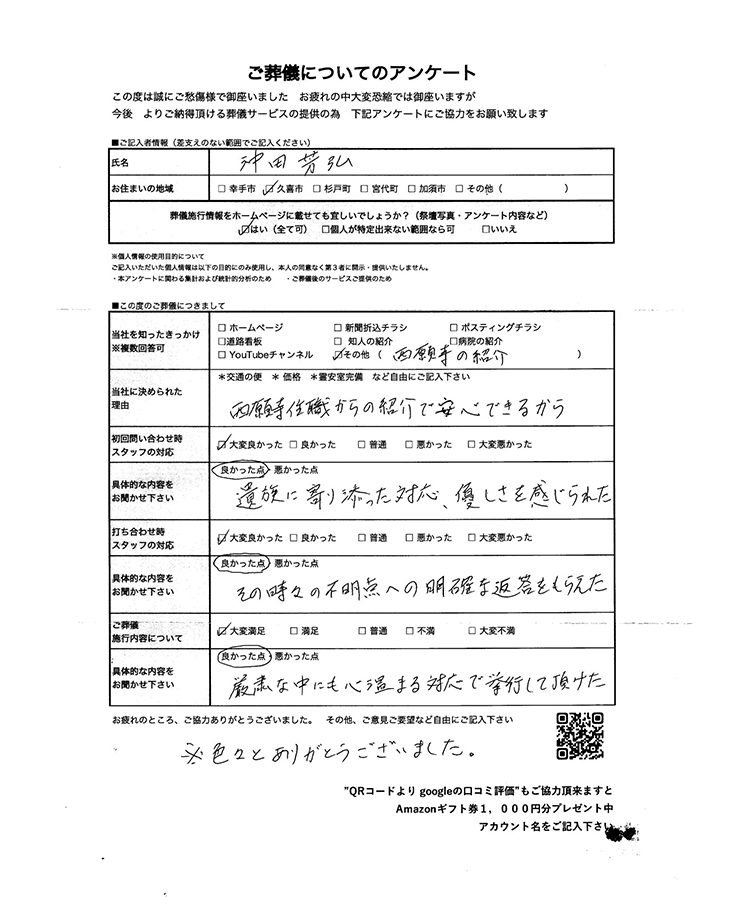 ご葬儀についてのアンケート
この度は誠にご愁傷様で御座いました　お疲れの中大変恐縮では御座いますが
今後　よりご納得頂ける葬儀サービスの提供の為　下記アンケートにご協力をお願い致します
■ご記入者情報（差支えのない範囲でご記入ください）
氏名 沖田芳弘
お住まいの地域 □ 幸手市 ☑ 久喜市 □ 杉戸町 □ 宮代町 □ 加須市 □ その他（　　　）
葬儀施行情報をホームページに載せても宜しいでしょうか？（祭壇写真・アンケート内容など）
☑はい（全て可） □個人が特定出来ない範囲なら可 □いいえ
※個人情報の使用目的について
ご記入いただいた個人情報は以下の目的にのみ使用し、本人の同意なく第３者に開示・提供いたしません。
・本アンケートに関わる集計および統計的分析のため　・ご葬儀後のサービスご提供のため
■この度のご葬儀につきまして
当社を知ったきっかけ
※複数回答可
□ ホームページ □ 新聞折込チラシ □ ポスティングチラシ
□道路看板 □ 知人の紹介 □病院の紹介
□ YouTubeチャンネル ☑その他（ 西願寺の紹介 ）
当社に決められた
理由
＊交通の便　＊ 価格　＊霊安室完備　など自由にご記入下さい
西願寺住職からの紹介で安心できるから
初回問い合わせ時
スタッフの対応
☑ 大変良かった □ 良かった □ 普通 □ 悪かった □ 大変悪かった
具体的な内容を
お聞かせ下さい
良かった点・悪かった点
遺族に寄り添った対応、優しさを感じられた
打ち合わせ時
スタッフの対応
☑ 大変良かった □ 良かった □ 普通 □ 悪かった □ 大変悪かった
具体的な内容を
お聞かせ下さい
良かった点・悪かった点
その時々の不明点への明確な返答をもらえた
ご葬儀
施行内容について
☑ 大変満足 □ 満足 □ 普通 □ 不満 □ 大変不満
具体的な内容を
お聞かせ下さい
良かった点・悪かった点
厳粛な中にも心温まる対応で挙行して頂けた
お疲れのところ、ご協力ありがとうございました。　その他、ご意見ご要望など自由にご記入下さい
※色々とありがとうございました。
"QRコードより googleの口コミ評価"もご協力頂来ますと
Amazonギフト券１，０００円分プレゼント中
アカウント名をご記入下さい